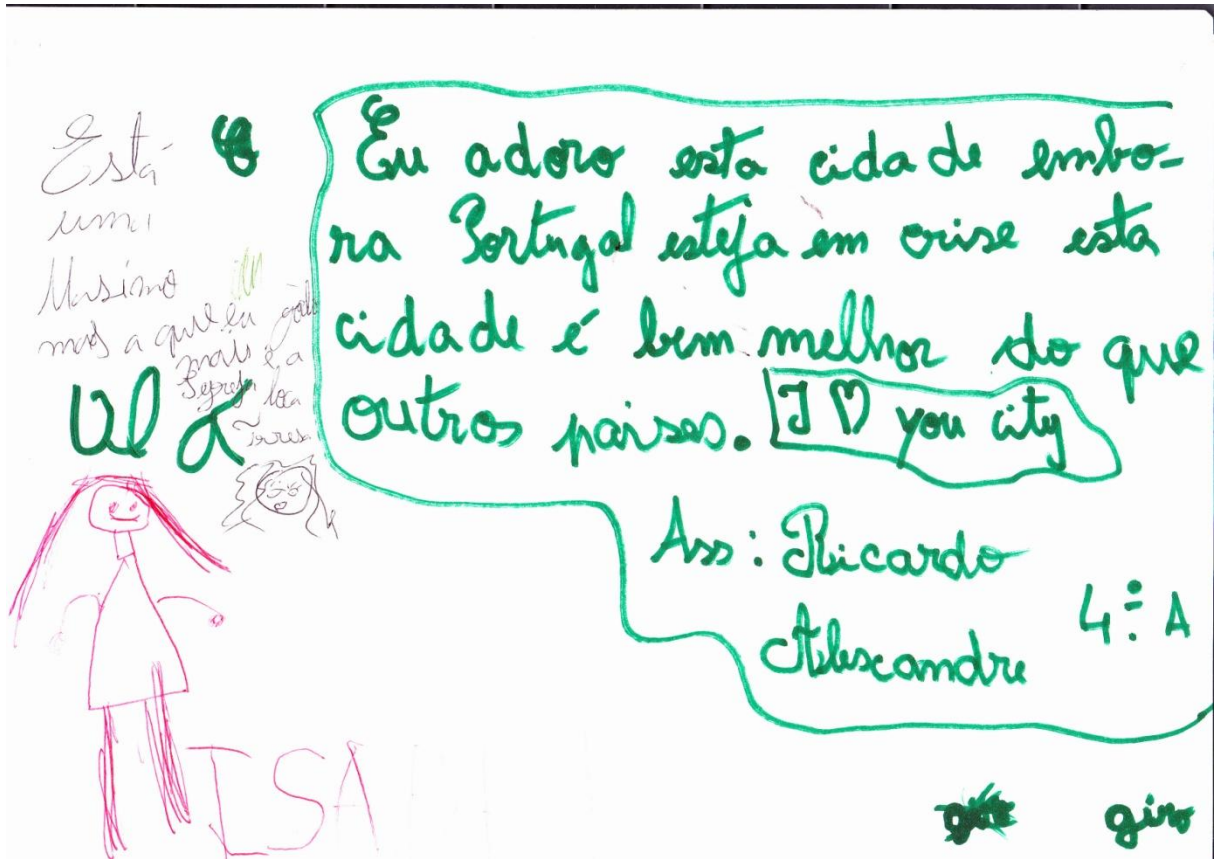 Está
uma
Masímo
mas a que eu gosto
mais é a
Teresa
Eu adoro esta cidade embo-
ra Portugal esteja em crise esta
cidade é bem melhor do que
outros países. I ♡ you city
Ass: Ricardo
Alexandre 4.º A
ISA
giro